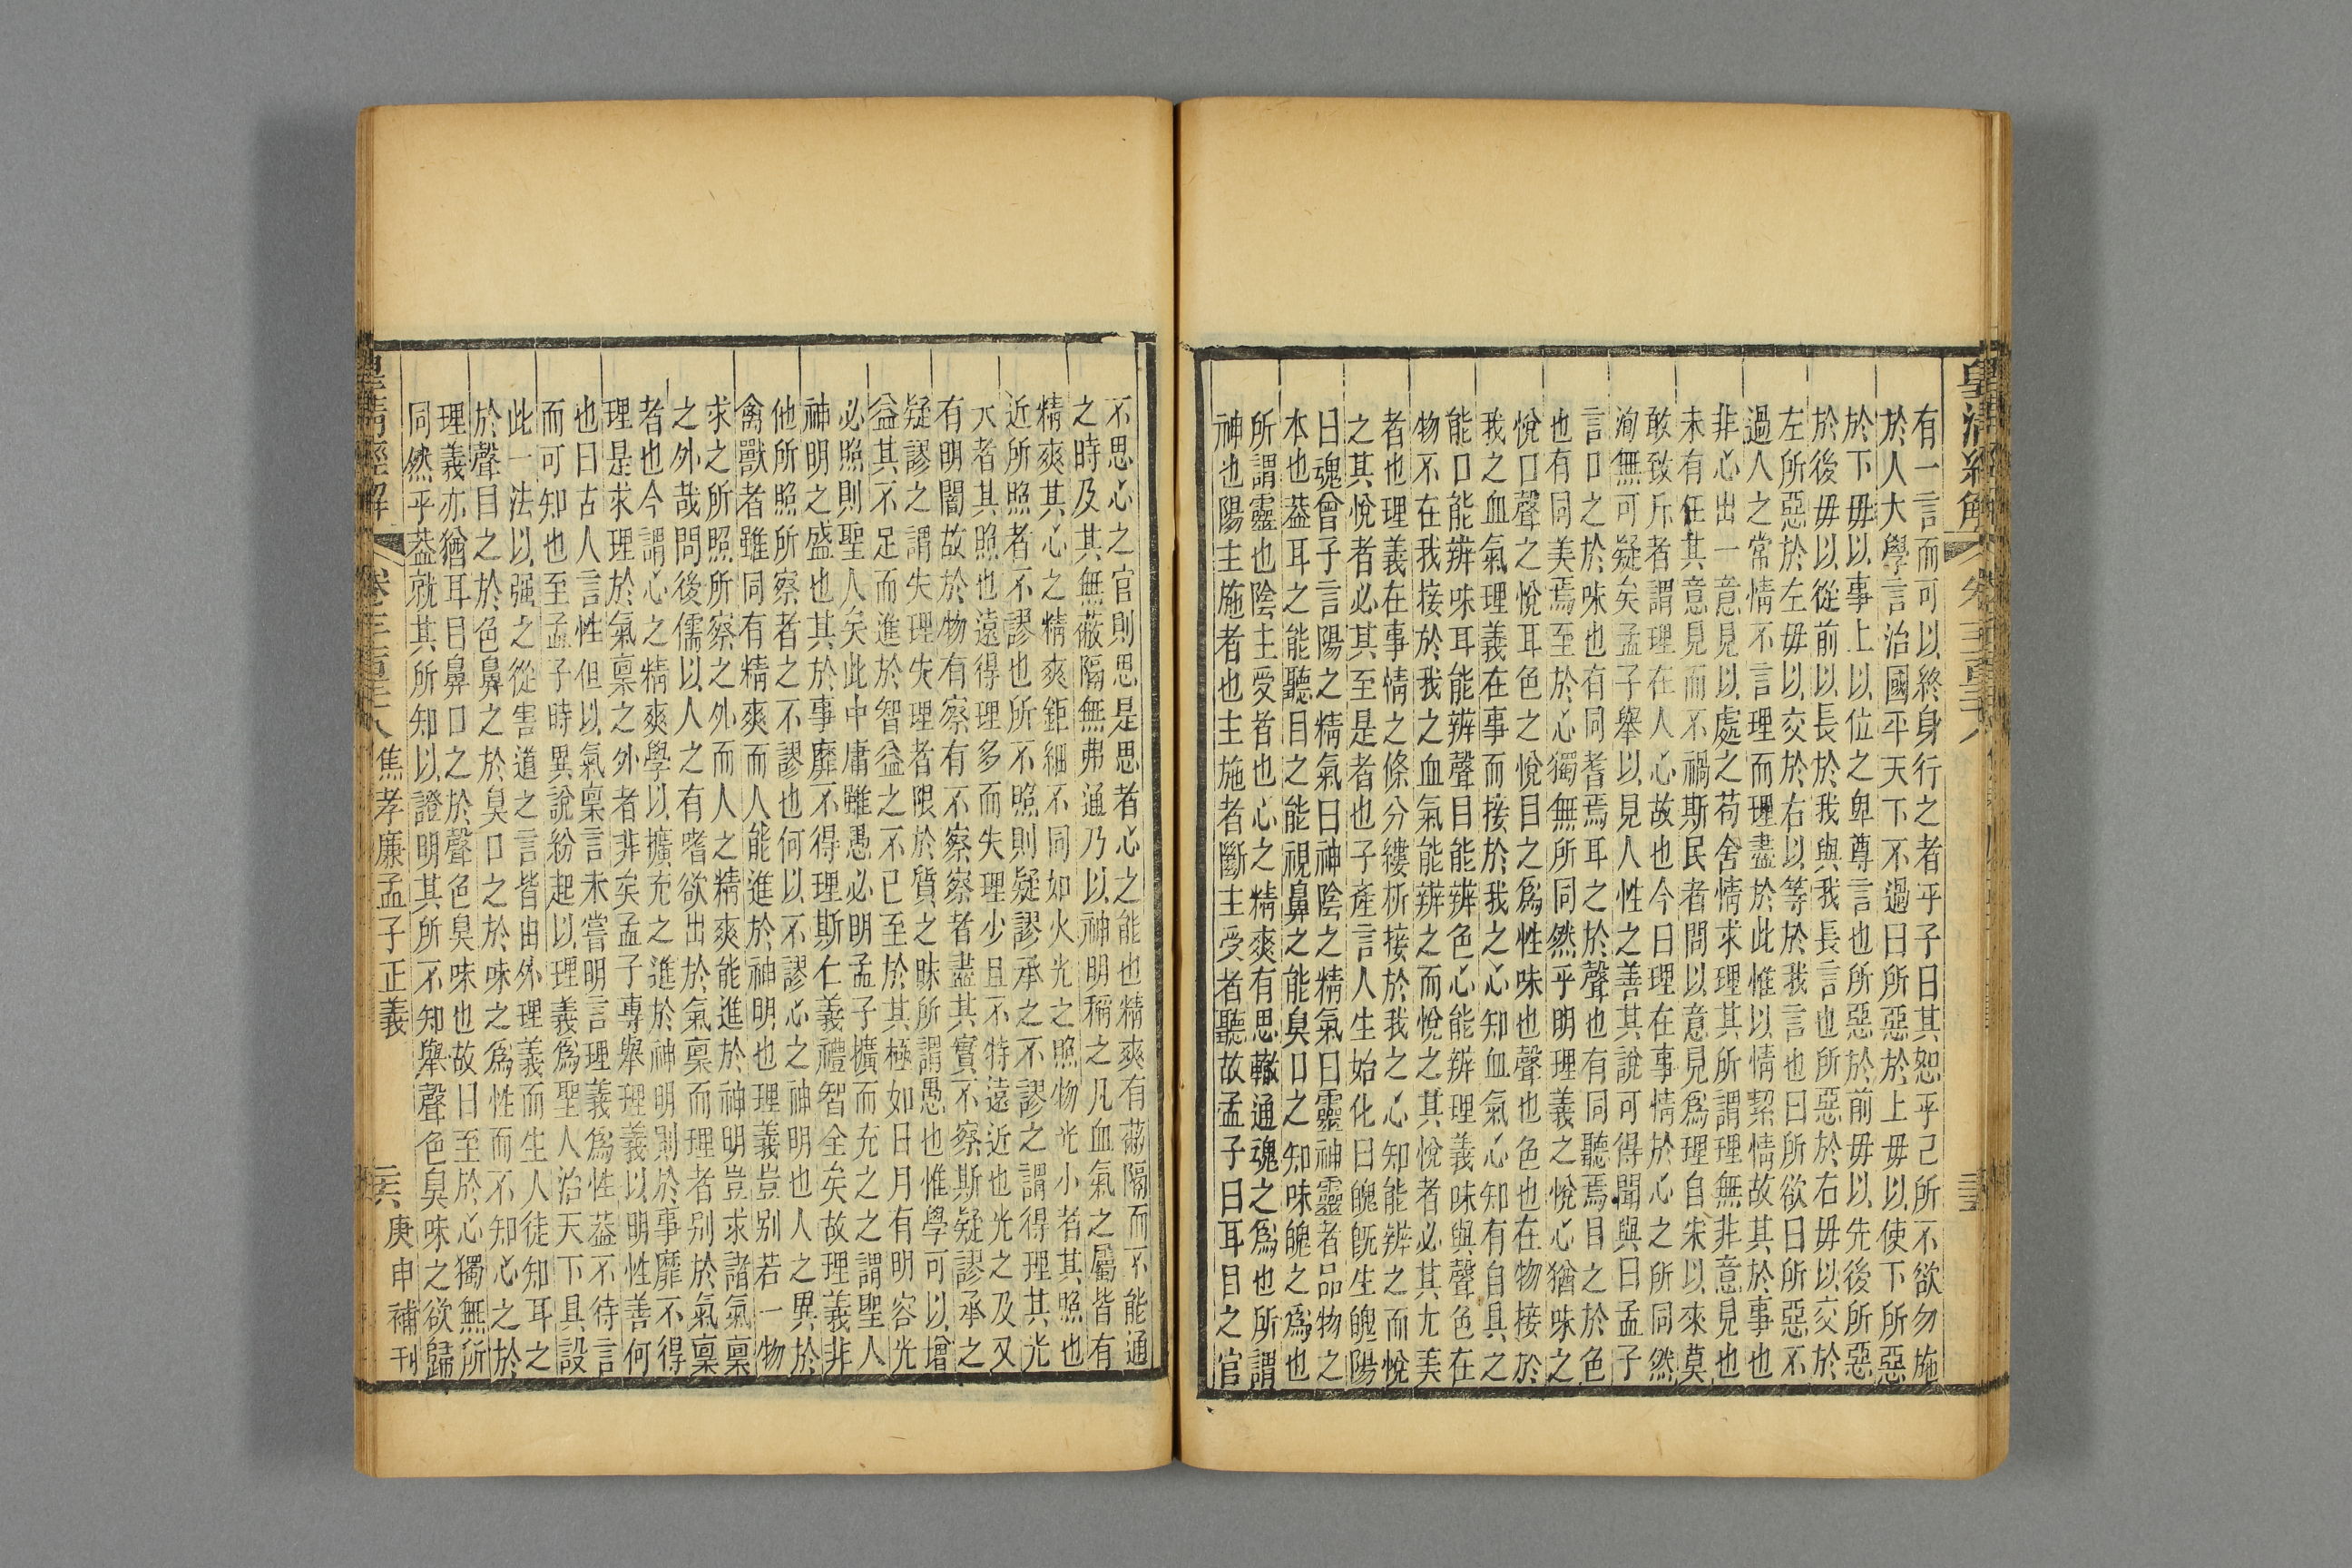 皇清經解
有一言而可以終身行之者乎子曰其恕乎己所不欲勿施
於人大學言治國平天下不過曰所惡於上毋以使下所惡
於下毋以事上以位之卑尊言也所惡於前毋以先後所惡
於後毋以從前以長於我與我長言也所惡於右毋以交於
左所惡於左毋以交於右以等於我言也曰所欲曰所惡不
過人之常情不言理而理盡於此惟以情絜情故其於事也
非心出一意見以處之苟舍情求理其所謂理無非意見也
未有任其意見而不禍斯民者問以意見爲理自宋以來莫
敢致斥者謂理在人心故也今曰理在事情於心之所同然
洵無可疑矣孟子舉以見人性之善其說可得聞與曰孟子
言口之於味也有同耆焉耳之於聲也有同聽焉目之於色
也有同美焉至於心獨無所同然乎明理義之悅心猶味之
悅口聲之悅耳色之悅目之爲性味也聲也色也在物接於
我之血氣理義在事而接於我之心知血氣心知有自具之
能口能辨味耳能辨聲目能辨色心能辨理義味與聲色在
物不在我接於我之血氣能辨之而悅之其悅者必其尤美
者也理義在事情之條分縷析接於我之心知能辨之而悅
之其悅者必其至是者也子產言人生始化曰魄旣生魄陽
曰魂曾子言陽之精氣曰神陰之精氣曰靈神靈者品物之
本也葢耳之能聽目之能視鼻之能臭口之知味魄之爲也
所謂靈也陰主受者也心之精爽有思輒通魂之爲也所謂
神也陽主施者也主施者斷主受者聽故孟子曰耳目之官
不思心之官則思是思者心之能也精爽有蔽隔而不能通
之時及其無蔽隔無弗通乃以神明稱之凡血氣之屬皆有
精爽其心之精爽鉅細不同如火光之照物光小者其照也
近所照者不謬也所不照則疑謬承之不謬之謂得理其光
大者其照也遠得理多而失理少且不特遠近也光之及又
有明闇故於物有察有不察察者盡其實不察斯疑謬承之
疑謬之謂失理失理者限於質之昧所謂愚也惟學可以增
益其不足而進於智益之不已至於其極如日月有明容光
必照則聖人矣此中庸雖愚必明孟子擴而充之之謂聖人
神明之盛也其於事靡不得理斯仁義禮智全矣故理義非
他所照所察者之不謬也何以不謬心之神明也人之異於
禽獸者雖同有精爽而人能進於神明也理義豈別若一物
求之所照所察之外而人之精爽能進於神明豈求諸氣稟
之外哉問後儒以人之有嗜欲出於氣稟而理者別於氣稟
者也今謂心之精爽學以擴充之進於神明則於事靡不得
理是求理於氣稟之外者非矣孟子專舉理義以明性善何
也曰古人言性但以氣稟言未嘗明言理義爲性葢不待言
而可知也至孟子時異說紛起以理義爲聖人治天下具設
此一法以强之從害道之言皆由外理義而生人徒知耳之
於聲目之於色鼻之於臭口之於味之爲性而不知心之於
理義亦猶耳目鼻口之於聲色臭味也故曰至於心獨無所
同然乎葢就其所知以證明其所不知舉聲色臭味之欲歸
皇清經解
焦孝廉孟子正義
庚申補刊